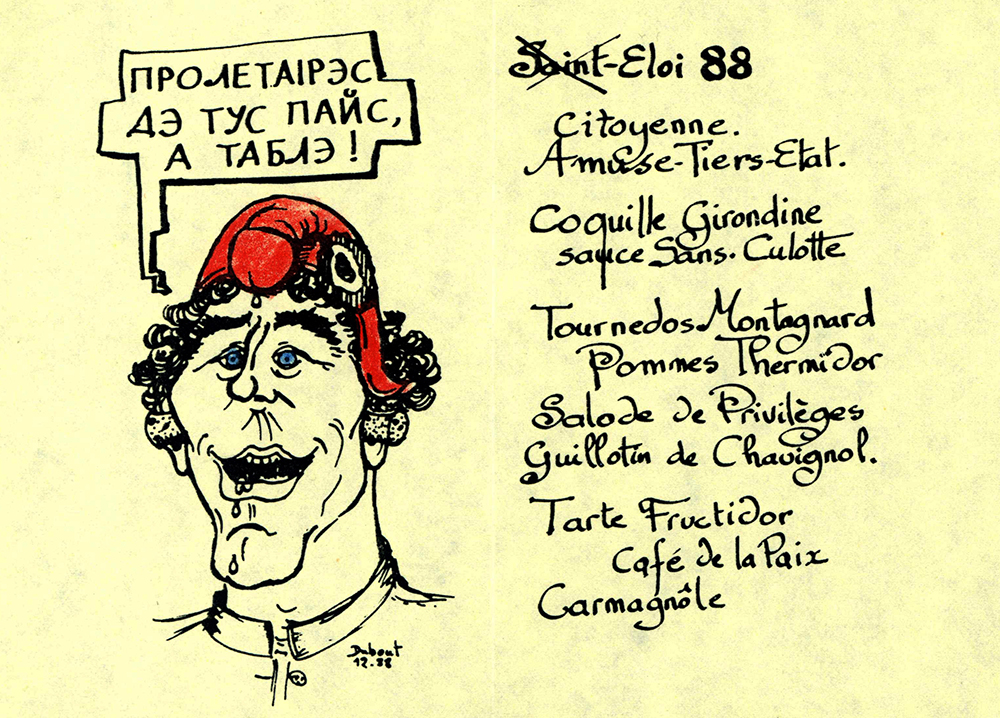 ПРОЛЕТАІРЭС
ДЭ ТУС ПАЙС,
А ТАБЛЭ!
Saint-Eloi 88
Citoyenne.
Amuse-Tiers-Etat.
Coquille Girondine
sauce Sans-Culotte
Tournedos Montagnard
Pommes Thermidor
Salade de Privilèges
Guillotin de Chavignol.
Tarte Fructidor
Café de la Paix
Carmagnôle
Dubout
12.88